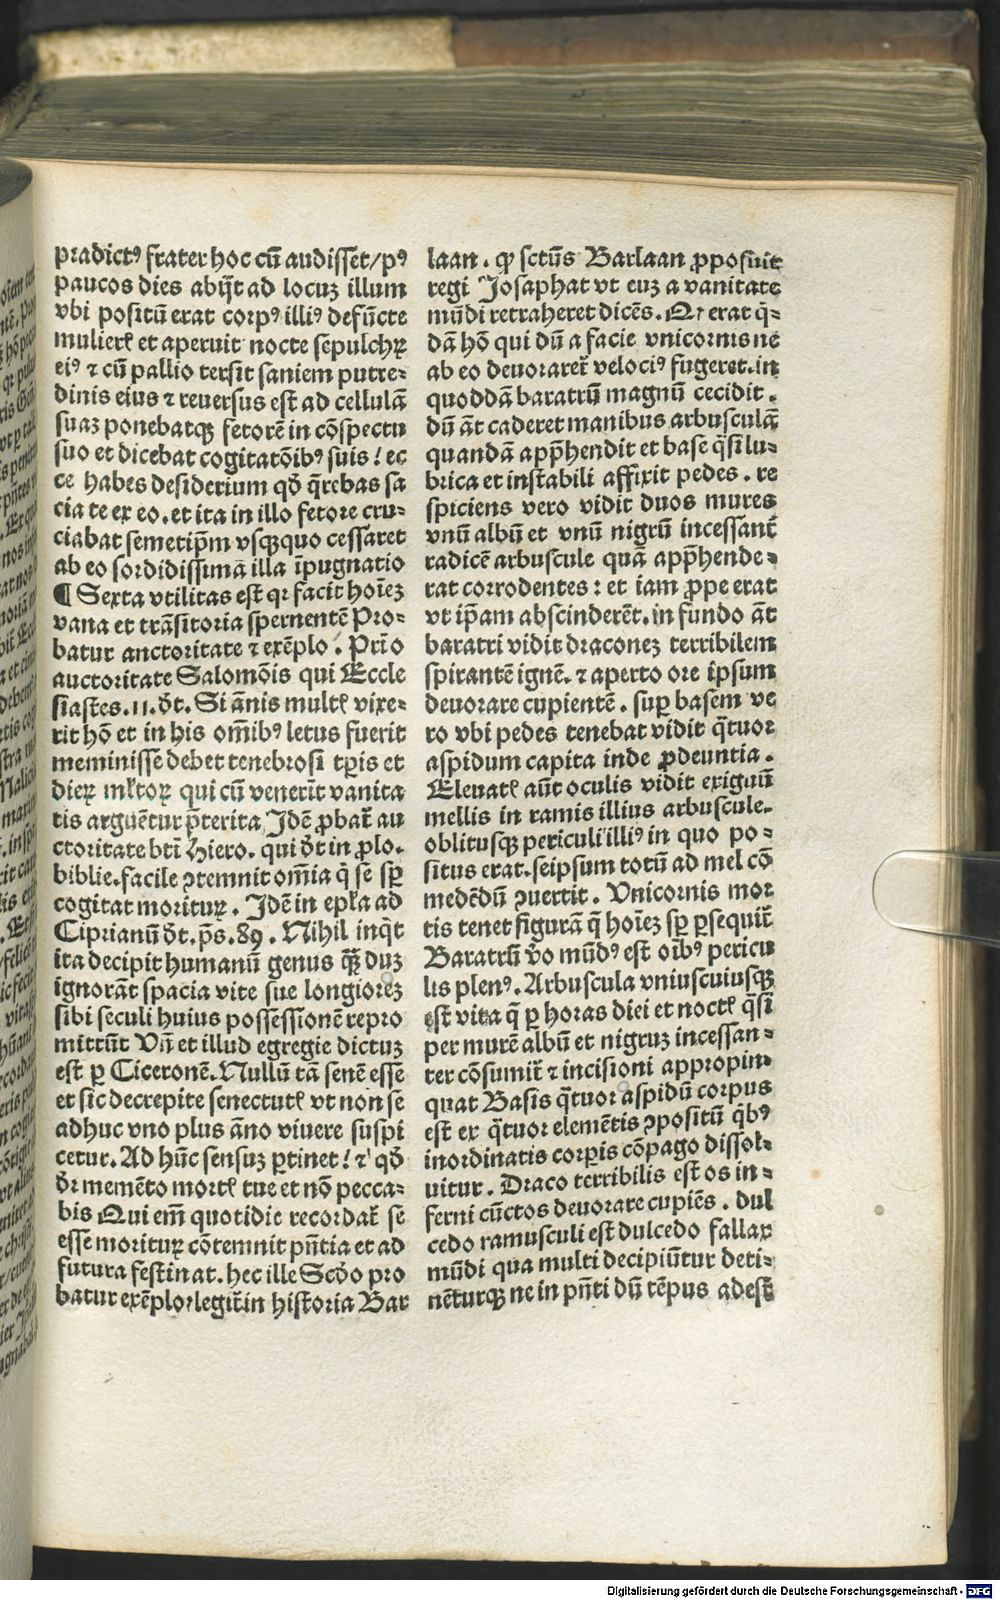 pradictꝰ frater hoc cū audisset/pꝰ
paucos dies abijt ad locuz illum
vbi positū erat corpꝰ illiꝰ defūcte
mulierꝭ et aperuit nocte sepulchꝝ
eiꝰ ⁊ cū pallio tersit saniem putre⸗
dinis eius ⁊ reuersus est ad cellulā
suaz ponebatqꝫ fetorē in cōspectu
suo et dicebat cogitatōibꝰ suis! ec
ce habes desiderium qd̄ q̄rebas sa
cia te ex eo. et ita in illo fetore cru⸗
ciabat semetip̄m vsqꝫquo cessaret
ab eo sordidissima illa īpugnatio
¶ Sexta vtilitas est qꝛ facit hoīez
vana et trāsitoria spernentē Pro⸗
batur auctoritate ⁊ exēplo. Prīo
auctoritate Salomōis qui Eccle
siastes. 11. d̄t. Si ānis multꝭ vixe⸗
rit hō et in his oīmibꝰ letus fuerit
meminisse debet tenebrosi tp̄is et
dieꝝ mltoꝝ qui cū venerīt vanita
tis arguētur p̄terita Idē ꝓbat̄ au
ctoritate btī Hiero. qui d̄t in ꝓlo.
biblie. facile ꝯtemnit om̄ia q̄ se sp̄
cogitat morituꝝ. Idē in epl̄a ad
Ciprianū d̄t. ps̄. 89. Nihil inq̄t
ita decipit humanū genus q̄ꝫ duz
ignorāt spacia vite sue longiorez
sibi seculi huius possessionē repro
mittūt Vn̄ et illud egregie dictuz
est ꝑ Ciceronē. Nullū tā senē esse
et sic decrepite senectutꝭ vt non se
adhuc vno plus āno viuere suspi
cetur. Ad hūc sensuz ꝑtinet! ⁊ qd̄
d̄r memēto mortꝭ tue et nō pecca⸗
bis Qui em̄ quotidie recordat̄ se
esse morituꝝ cōtemnit pn̄tia et ad
futura festinat. hec ille Scd̄o pro
batur exēplo ⁊ legit̄ in historia Bar
laan. ꝙ sctūs Barlaan ꝓposuit
regi Josaphat vt euz a vanitate
mūdi retraheret dicēs. Qꝛ erat q̄⸗
dā hō qui dū a facie vnicornis ne
ab eo deuoraret̄ velociꝰ fugeret. in
quoddā baratrū magnū cecidit.
dū āt caderet manibus arbusculā
quandā appꝛ̄hendit et base q̄si lu⸗
brica et instabili affixit pedes. re
spiciens vero vidit duos mures
vnū albū et vnū nigrū incessant̄
radicē arbuscule quā app̄hende⸗
rat corrodentes: et iam ꝓpe erat
vt ip̄am abscinderēt. in fundo āt
baratri vidit draconez terribilem
spirantē ignē. ⁊ aperto ore ipsum
deuorare cupientē. suꝑ basem ve
ro vbi pedes tenebat vidit q̄tuor
aspidum capita inde ꝓdeuntia.
Eleuatꝭ aūt oculis vidit exiguū
mellis in ramis illius arbuscule.
oblitusqꝫ periculi illiꝰ in quo po⸗
situs erat. seipsum totū ad mel cō
medēdū ꝯuertit. Vnicornis mor
tis tenet figurā q̄ hoīez sp̄ ꝑsequit̄
Baratrū v̄o mūdꝰ est oībꝰ pericu
lis plenꝰ. Arbuscula vniuscuiusqꝫ
est vita q̄ ꝑ horas diei et noctꝭ q̄si
per murē albū et nigruz incessan⸗
ter cōsumit̄ ⁊ incisioni appropin⸗
quat Basis q̄tuor aspidū corpus
est ex q̄tuor elemētis ꝯpositū q̄bꝰ
inordinatis corꝑis cōpago dissol⸗
uitur. Draco terribilis est os in⸗
ferni cūctos deuorare cupiēs. dul
cedo ramusculi est dulcedo fallax
mūdi qua multi decipiūtur deti⸗
nēturqꝫ ne in pn̄ti dū tēpus adest
Digitalisierung gefördert durch die Deutsche Forschungsgemeinschaft - DFG